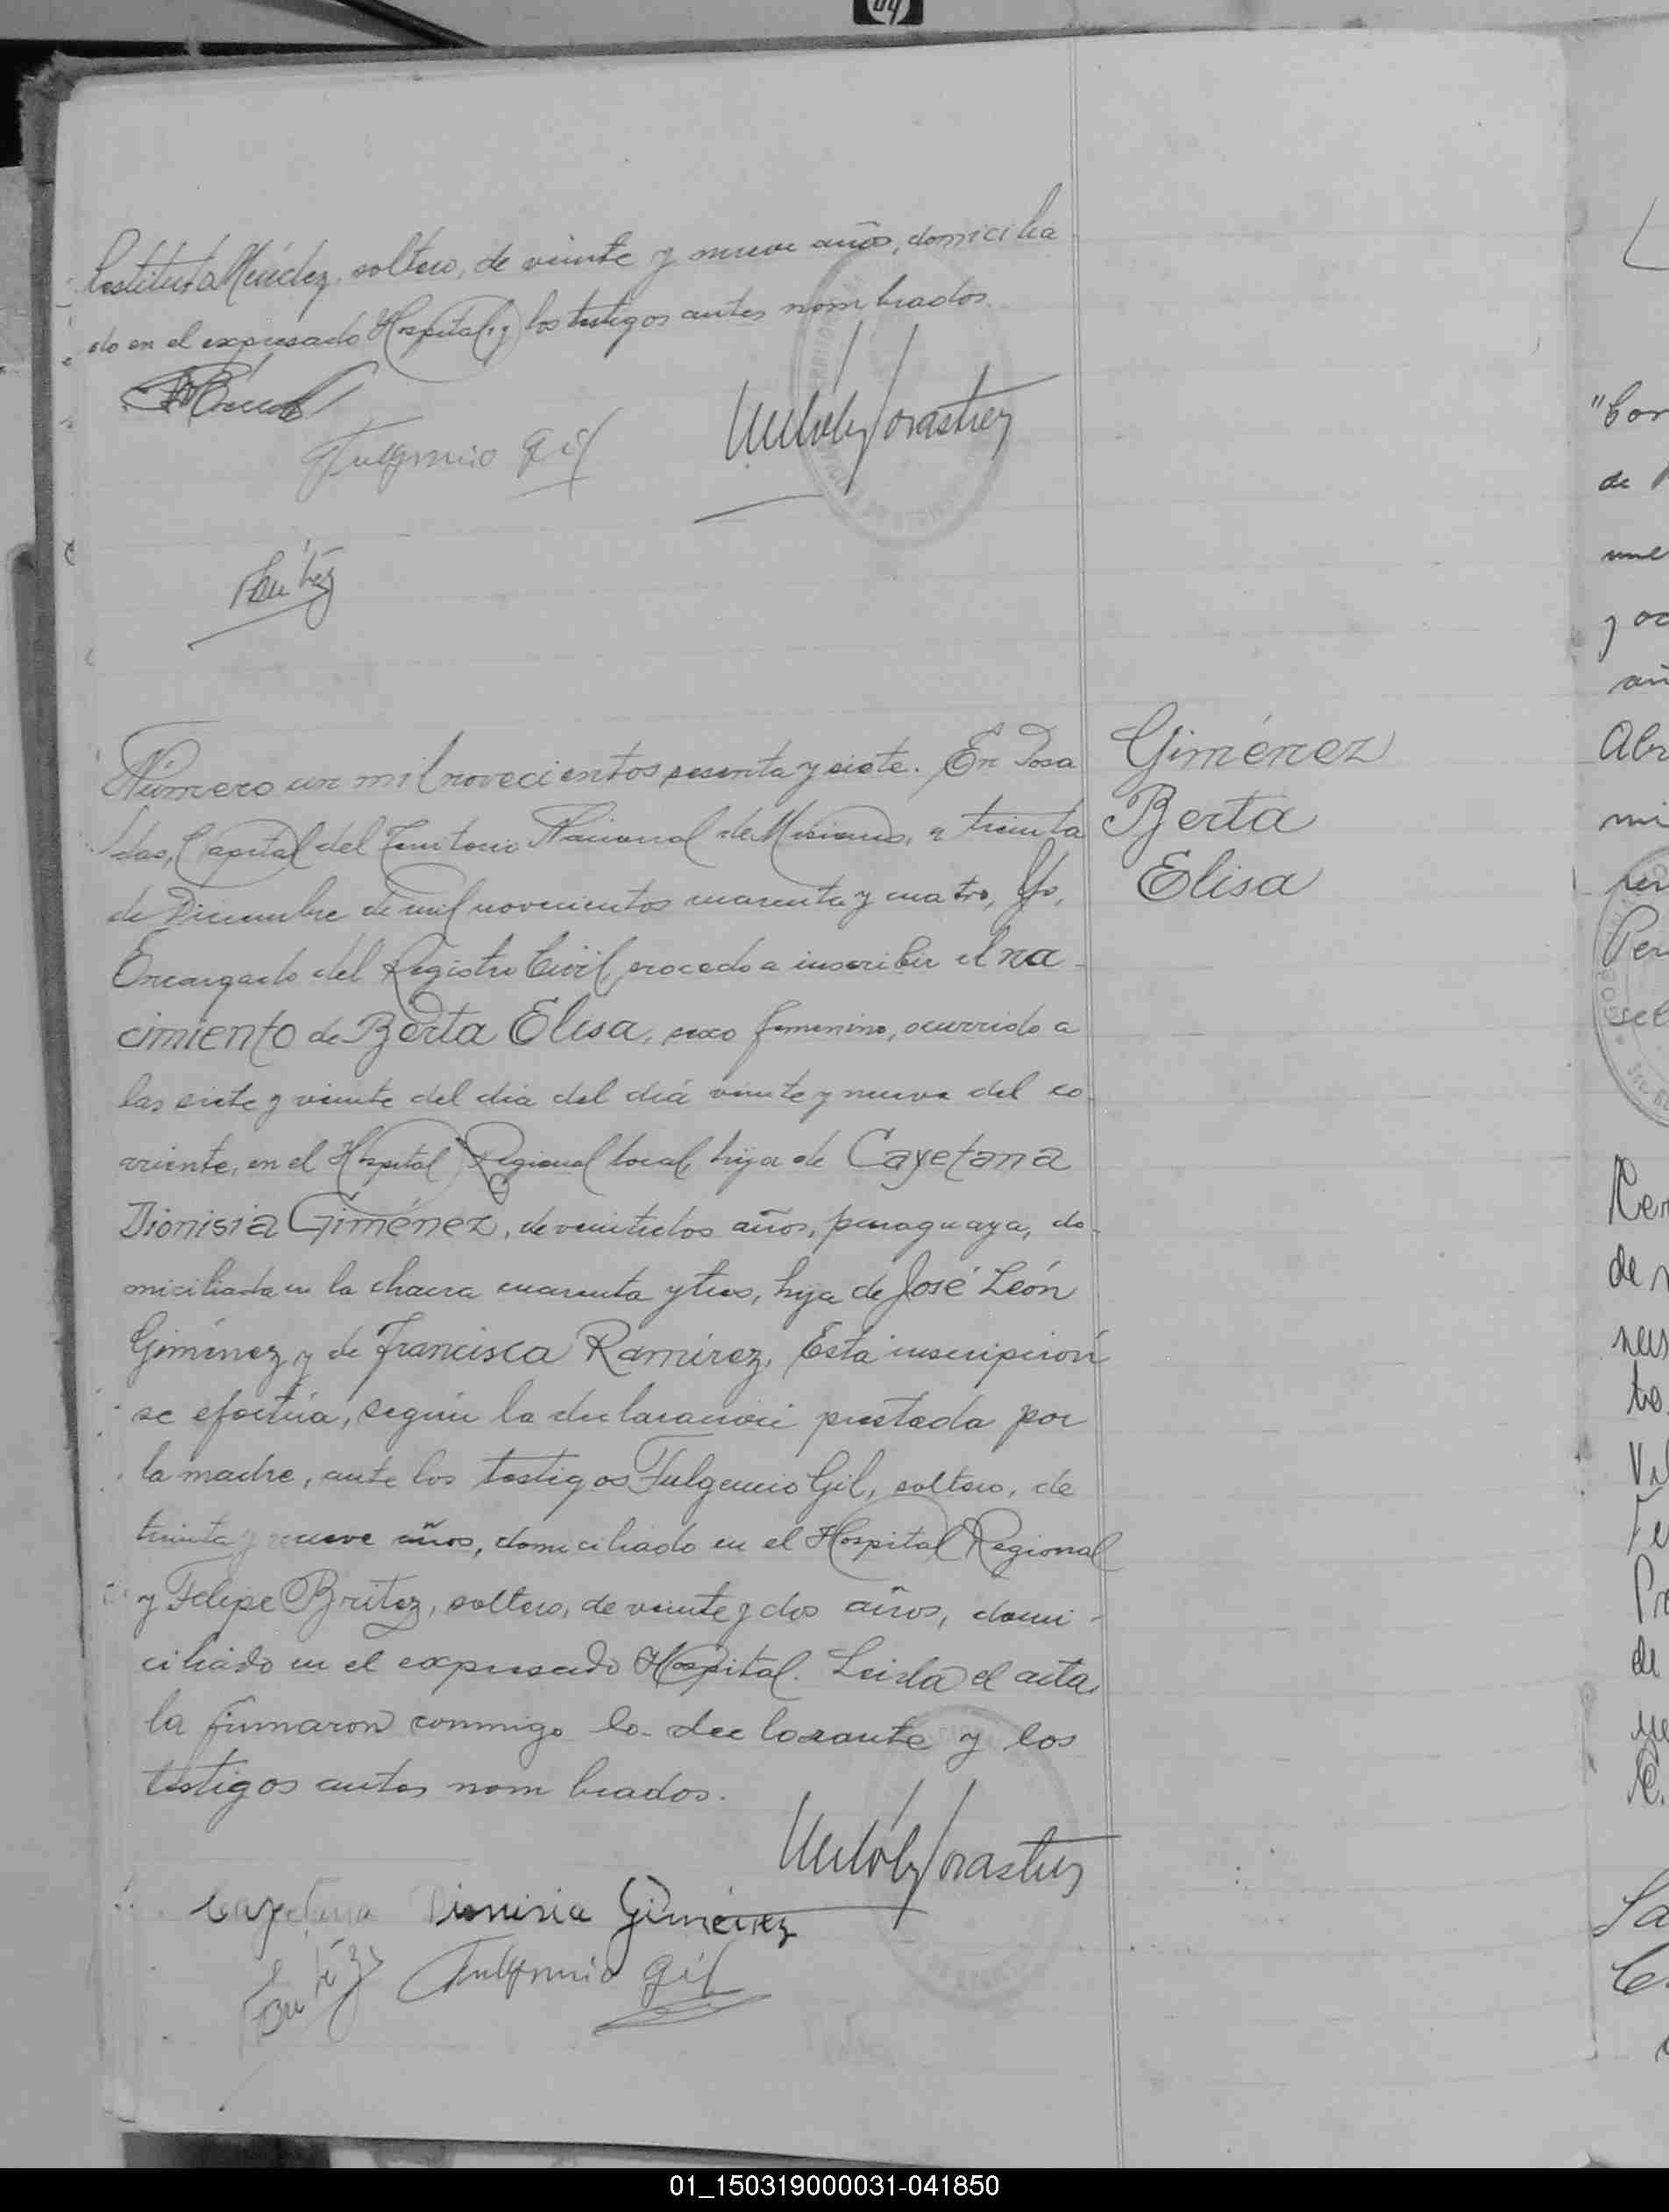 Restituto Méndez, soltero, de veinte y nueve años, domicilia
do en el expresado Hospital, y los testigos antes nombrados.
Fulgencio Gil
Britez
Número un mil novecientos sesenta y siete. En Posa
das, Capital del Territorio Nacional de Misiones, a treinta
de Diciembre de mil novecientos cuarenta y cuatro, Yo,
Encargado del Registro Civil, procedo a inscribir el na-
cimiento de Berta Elisa, sexo femenino, ocurrido a
las siete y veinte del dia del diá veinte y nueve del co-
rriente, en el Hospital Regional local, hija de Cayetana
Dionisia Giménez, de veintidos años, paraguaya, do-
miciliada en la chacra cuarenta y tres, hija de José León
Giménez y de Francisca Ramírez. Esta inscripción
se efectúa, según la declaración prestada por
la madre, ante los testigos Fulgencio Gil, soltero, de
treinta y nueve años, domiciliado en el Hospital Regional
y Felipe Britez, soltero, de veinte y dos años, domi-
ciliado en el expresado Hospital. Leida el acta,
la firmaron conmigo la declarante y los
testigos antes nombrados.
Cayetana Dionisia Giménez
Britez Fulgencio Gil
Giménez
Berta
Elisa
"Con
de
mil
y oc
añ
Abr
mi
per
Per
sel
de
nes
to.
Val
Fe
Pr
de
Sa
01_150319000031-041850